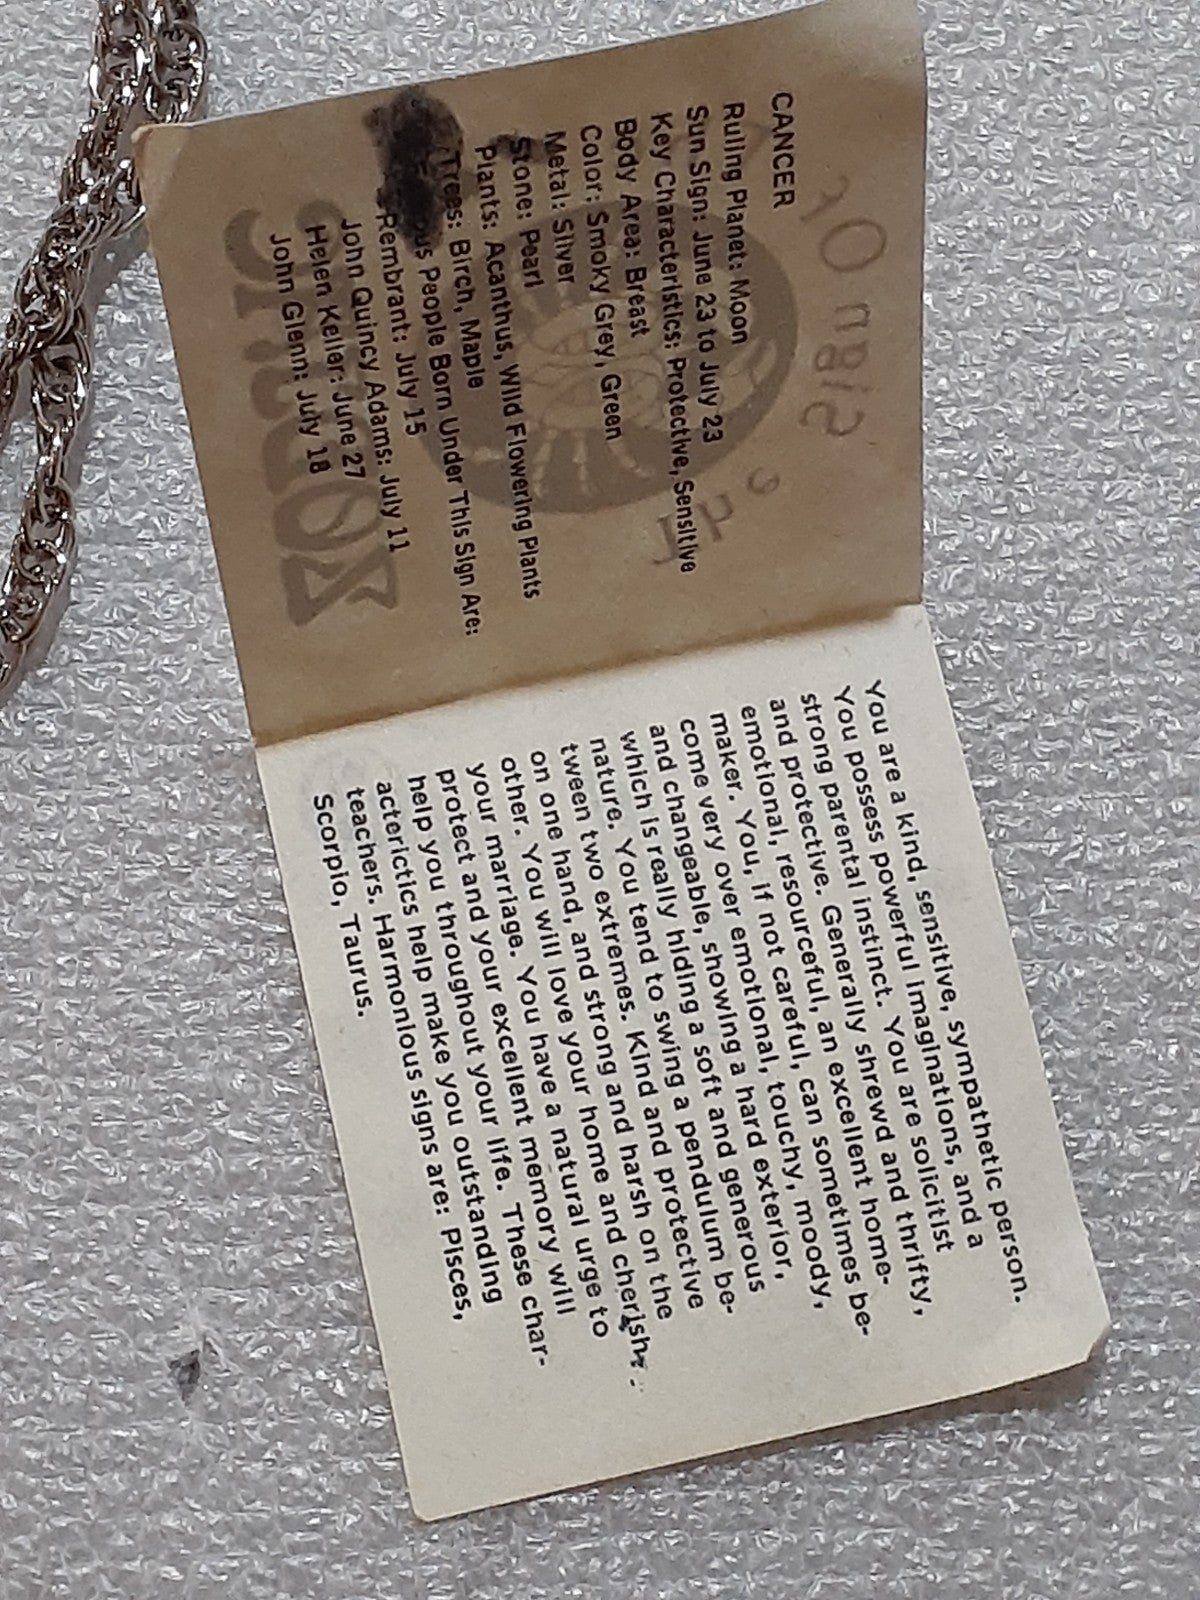 CANCER
Ruling Planet: Moon
Sun Sign: June 23 to July 23
Key Characteristics: Protective, Sensitive
Body Area: Breast
Color: Smoky Grey, Green
Metal: Silver
Stone: Pearl
Plants: Acanthus, Wild Flowering Plants
Trees: Birch, Maple
People Born Under This Sign Are:
Rembrant: July 15
John Quincy Adams: July 11
Helen Keller: June 27
John Glenn: July 18
You are a kind, sensitive, sympathetic person.
You possess powerful imaginations, and a
strong parental instinct. You are solicitist
and protective. Generally shrewd and thrifty,
emotional, resourceful, an excellent home-
maker. You, if not careful, can sometimes be-
come very over emotional, touchy, moody,
and changeable, showing a hard exterior,
which is really hiding a soft and generous
nature. You tend to swing a pendulum be-
tween two extremes. Kind and protective
on one hand, and strong and harsh on the
other. You will love your home and cherish
your marriage. You have a natural urge to
protect and your excellent memory will
help you throughout your life. These char-
acterictics help make you outstanding
teachers. Harmonious signs are: Pisces,
Scorpio, Taurus.